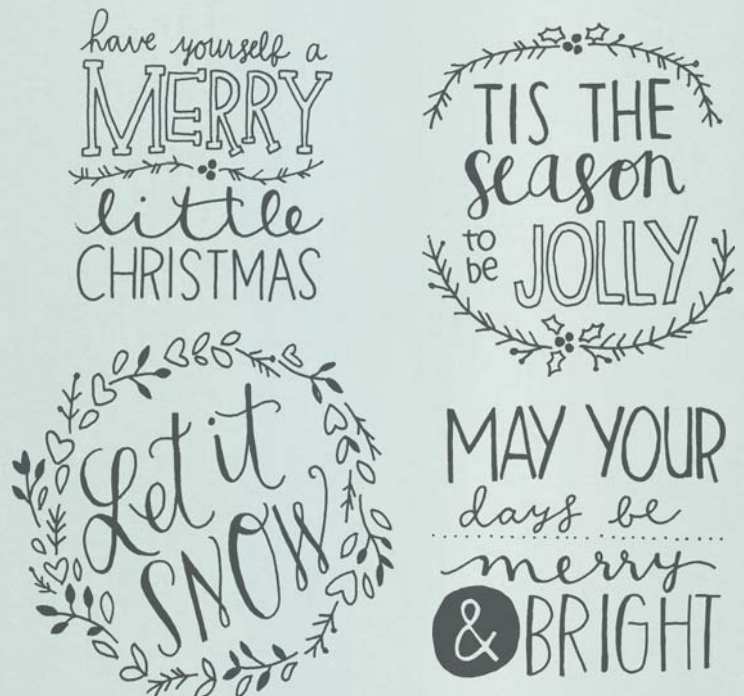 have yourself a
MERRY
little
CHRISTMAS
TIS THE
season
to
be JOLLY
Let it
SNOW
MAY YOUR
days be
merry
& BRIGHT